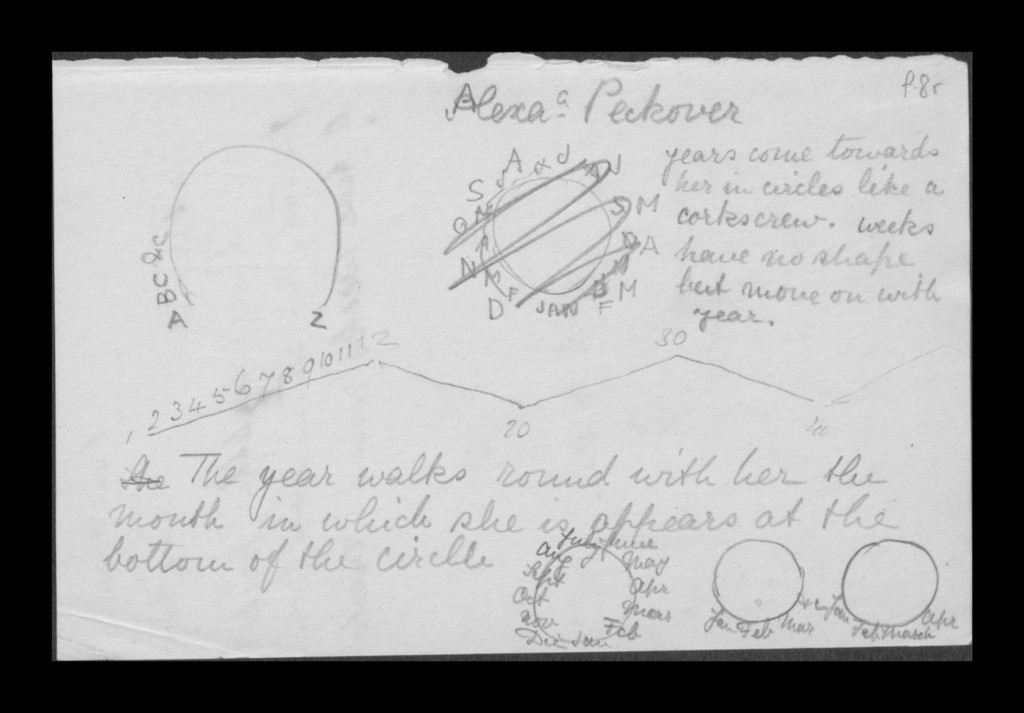 f. 8r
Alexa a Peckover
years come towards
her in circles like a
corkscrew. weeks
have no shape
but move on with
year.
A B C &c
Z
S J A J J
O N S M
A O A
N M N
F D M
D JAN F
1 2 3 4 5 6 7 8 9 10 11 12
20
30
40
The year walks round with her the
month in which she is appears at the
bottom of the circle
July June
Aug May
Sept Apr
Oct Mars
Nov Feb
Dec Jan
Jan Feb Mar
&c Jan Feb March Apr